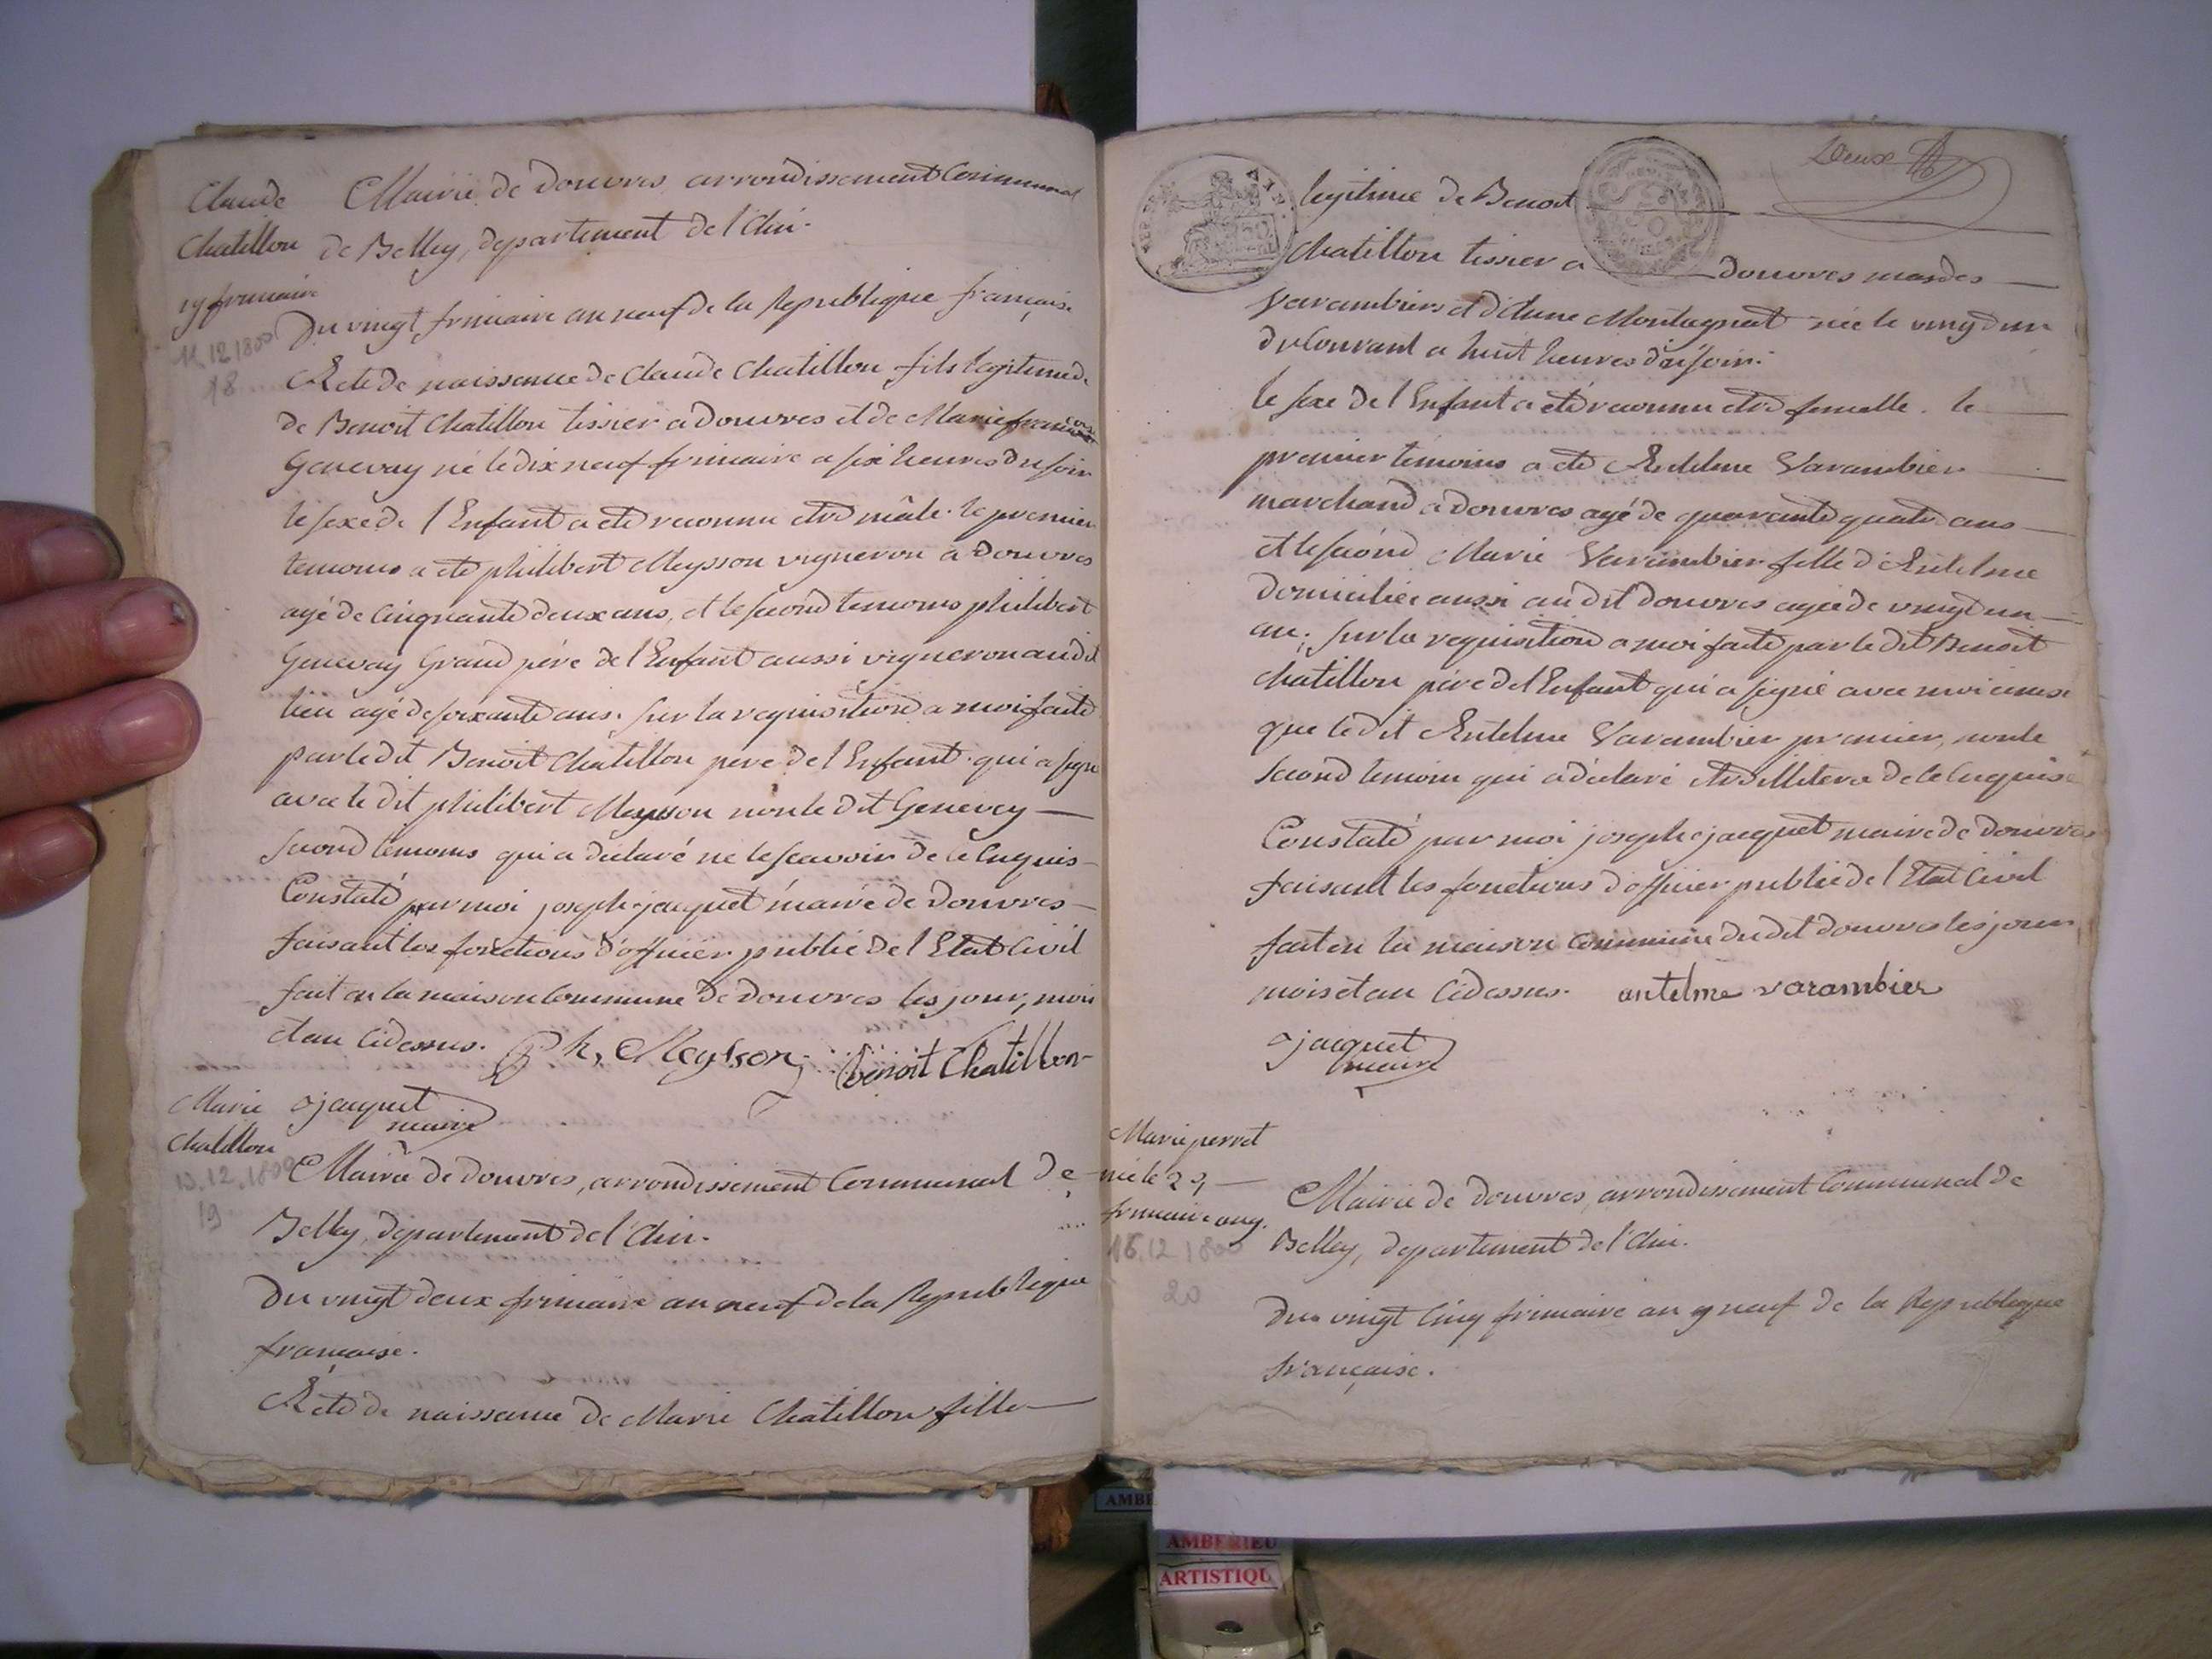 Claude
Chatillon
19 frimaire
11.12.1800
18
Mairie de Douvres, arrondissement Communal
de Belley, departement de l'Ain.
Du vingt frimaire an neuf de la Republique française
Acte de naissance de Claude Chatillon fils legitime de
de Benoit Chatillon tissier a Douvres et de Marie françoise
Genevay né le dix neuf frimaire a six heures du soir
le sexe de l'Enfant a eté reconnu etre mâle. le premier
temoins a eté philibert Meysson vigneron a Douvres
agé de Cinquante deux ans, et le second temoins philibert
Genevay Grand père de l'Enfant aussi vigneron audit
lieu agé de soixante ans. sur la requisition a moi faite
par le dit Benoit Chatillon pere de l'Enfant qui a signé
avec le dit philibert Meysson non le dit Genevey
second temoins qui a déclaré ne le scavoir de ce Enquis
Constaté par moi joseph jacquet maire de Douvres
faisant les fonctions d'officier public de l'Etat Civil
fait en la maison Commune de Douvres les jour, mois
et an Cidessus. Ph, Meysson Benoit Chatillon
jacquet
maire
Marie
Chatillon
13.12.1800
19
Mairie de Douvres, arrondissement Communal de
Belley, departement de l'Ain.
Du vingt deux frimaire an neuf de la Republique
française.
Acte de naissance de Marie Chatillon fille
Deux
legitime de Benoit
Chatillon tissier a Douvres mas des
Varambiers et d'Anne Montagnat née le vingt un
du Courant a huit heures du soir.
le sexe de l'Enfant a eté reconnu etre femelle. le
premier temoins a eté Antelme Varambier
marchand a Douvres agé de quarante quatre ans
et le second Marie Varambier fille d'Antelme
domiciliée aussi audit Douvres agée de vingt un
an; sur la requisition a moi faite par le dit Benoit
chatillon père de l'Enfant qui a signé avec moi ainsi
que le dit Antelme Varambier premier, non le
second temoin qui a déclaré etre illiterée de ce Enquise
Constaté par moi joseph jacquet maire de Douvres
faisant les fonctions d'officier public de l'Etat Civil
fait en la maison Commune dudit Douvres les jour
mois et an Cidessus. antelme varambier
jacquet
maire
Marie perret
née le 25
frimaire an 9.
16.12.1800
20
Mairie de Douvres, arrondissement Communal de
Belley, departement de l'Ain.
Du vingt Cinq frimaire an 9 neuf de la Republique
française.
AMBE
AMBERIEU
ARTISTIQU